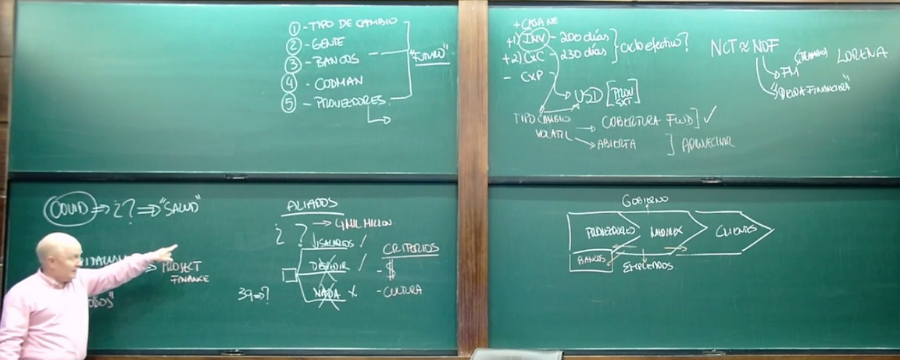 ① - TIPO DE CAMBIO
② - GENTE
③ - BANCOS
④ - CODMAN
⑤ - PROVEEDORES
"FUTURO"
+ CAJA NE
+1) INV - 200 días
+2) CxC - 230 días
- CxP
Ciclo efectivo?
USD
TIPO CAMBIO
VOLATIL
COBERTURA FWD ✓
ABIERTA
NCT ≈ NOF
FM
LORENA
COVID ⇒ ¿? ⇒ "SALUD"
PROJECT
FINANCE
ALIADOS
¿? → 4 MIL MILLON
DESPEDIR
NADA X
39 ⇒ ?
CRITERIOS
- $
- CULTURA
GOBIERNO
PROVEEDORES
CLIENTES
BANCOS
EMPLEADOS